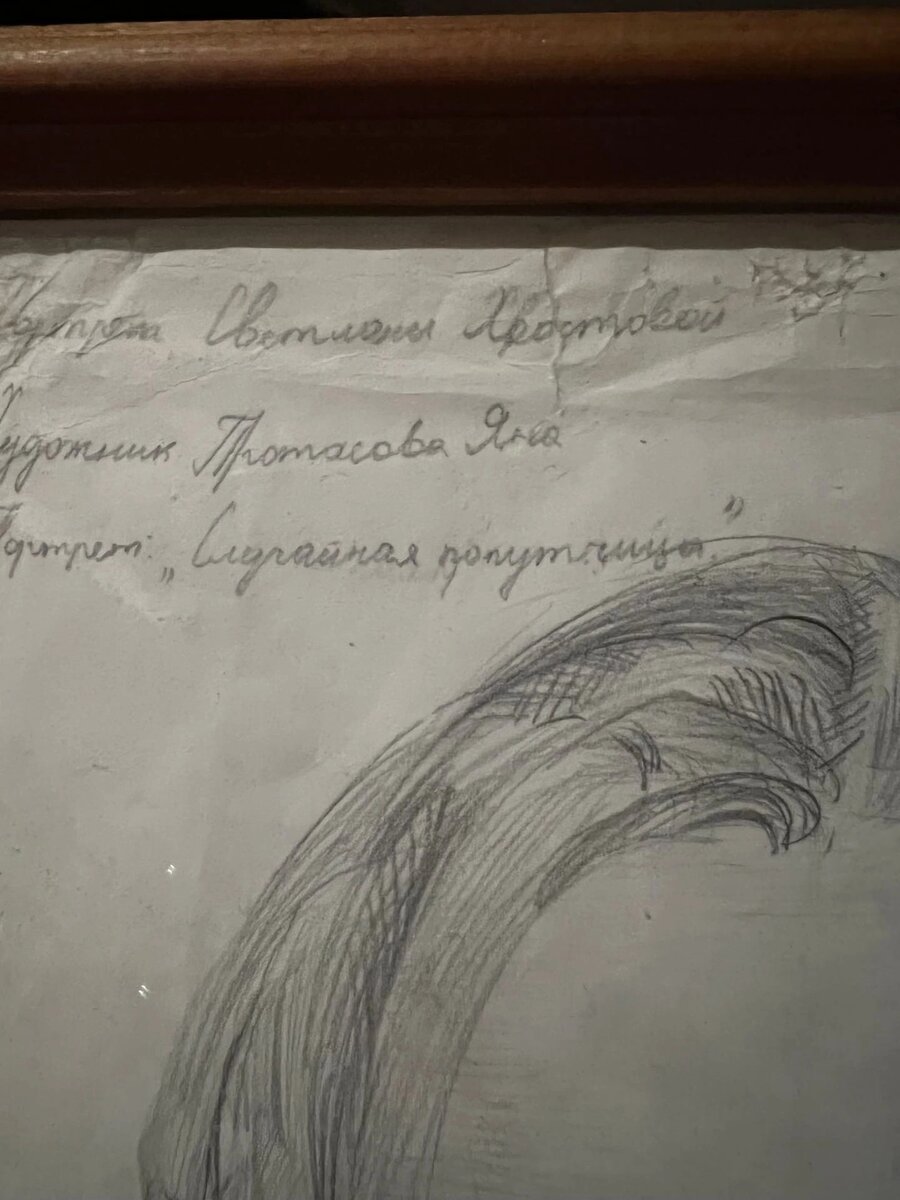 Портрет Светланы Хвостовой
Художник Протасова Яна
Портрет: „Случайная попутчица."